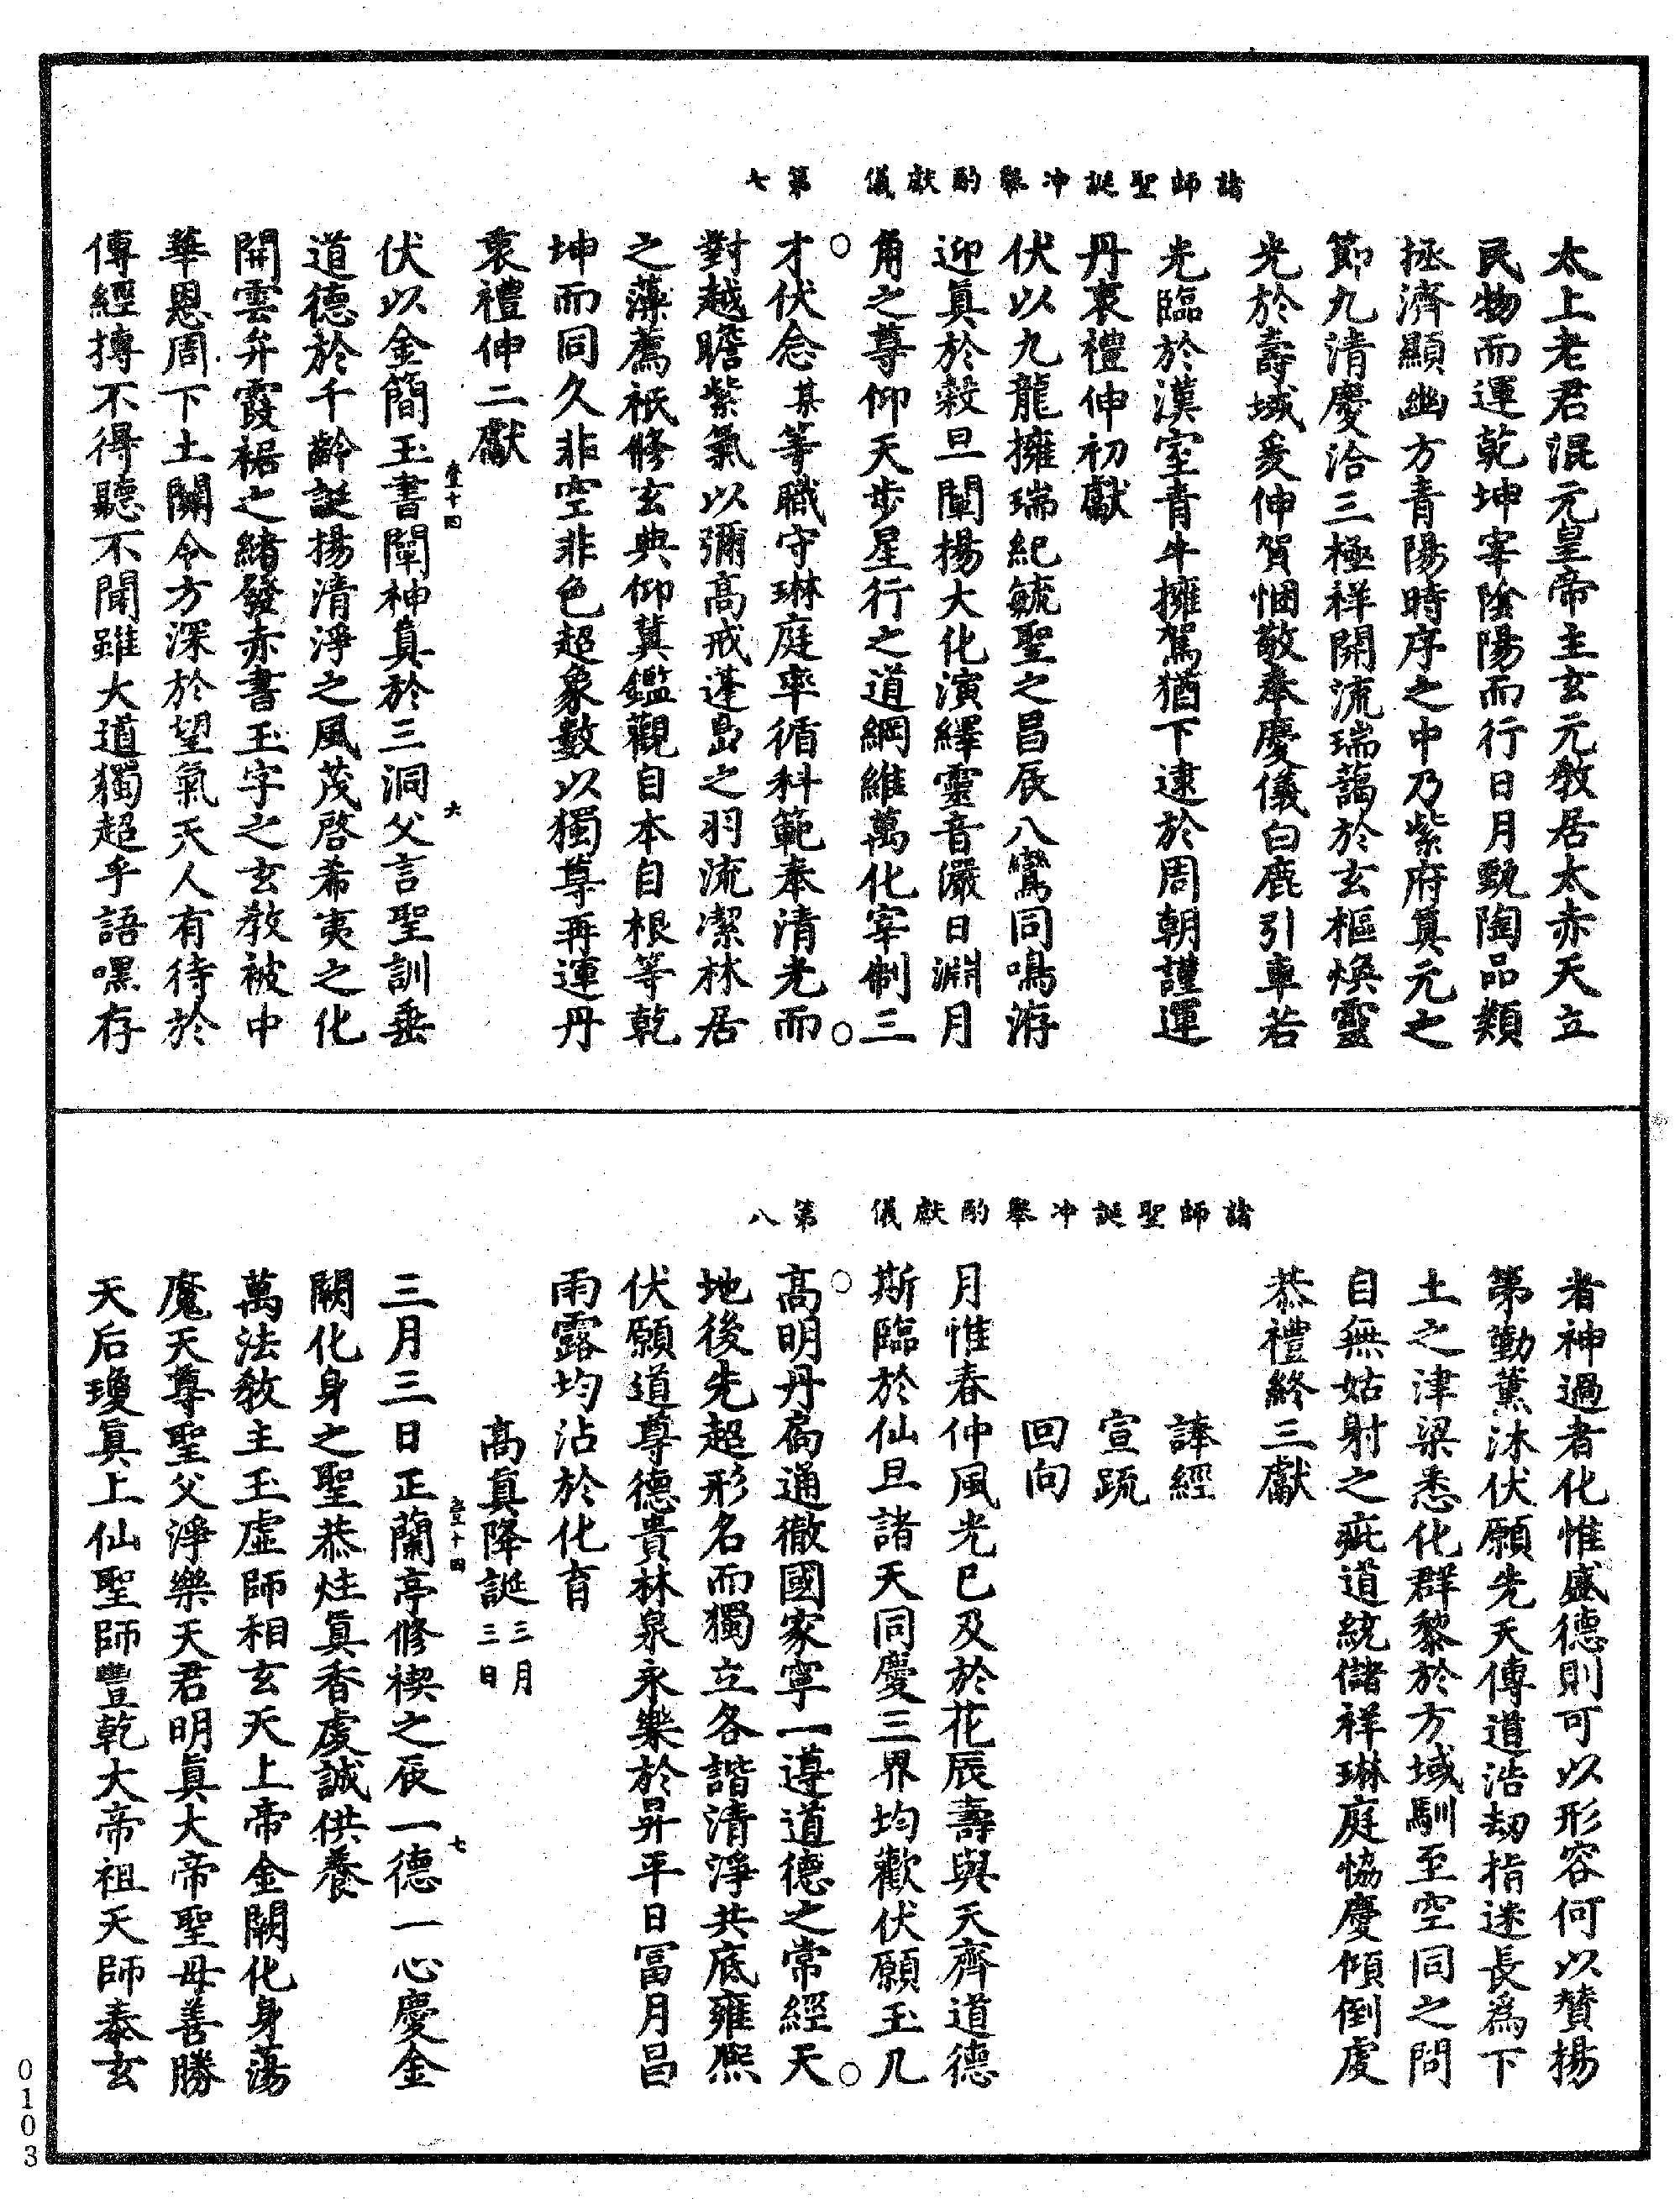 諸師聖誕冲舉酌獻儀　第七
太上老君混元皇帝主玄元教居太赤天立
民物而運乾坤宰陰陽而行日月甄陶品類
拯濟顯幽方青陽時序之中乃紫府箕元之
節九清慶洽三極祥開流瑞藹於玄樞煥靈
光於壽域爰伸賀悃敬奉慶儀白鹿引車若
光臨於漢室青牛擁駕猶下逮於周朝謹運
丹衷禮伸初獻
伏以九龍擁瑞紀毓聖之昌辰八鸞同鳴游
迎眞於穀旦闡揚大化演繹靈音儼日淵月
角之尊仰天步星行之道綱維萬化宰制三
才伏念某等職守琳庭率循科範奉清光而
對越瞻紫氣以彌高戒蓬島之羽流潔林居
之藻薦祇修玄典仰冀鑑觀自本自根等乾
坤而同久非空非色超象數以獨尊再運丹
衷禮伸二獻
伏以金簡玉書闡神真於三洞父言聖訓垂
壹十四
六
道德於千齡誕揚清淨之風茂啓希夷之化
開雲弁霞裾之緒發赤書玉字之玄教被中
華恩周下土關令方深於望氣天人有待於
傳經摶不得聽不聞雖大道獨超乎語嘿存
諸師聖誕冲舉酌獻儀　第八
者神過者化惟盛德則可以形容何以贊揚
第勤薰沐伏願先天傳道浩劫指迷長爲下
土之津梁悉化群黎於方域馴至空同之問
自無姑射之疵道統儲祥琳庭恊慶傾倒虔
恭禮終三獻
諱經
宣疏
回向
月惟春仲風光已及於花辰壽與天齊道德
斯臨於仙旦諸天同慶三界均歡伏願玉几
高明丹扃通徹國家寧一遵道德之常經天
地後先超形名而獨立各諧清淨共底雍熙
伏願道尊德貴林泉永樂於昇平日冨月昌
雨露均沾於化育
高真降誕三月三日
三月三日正蘭亭修禊之辰一德一心慶金
壹十四
七
闕化身之聖恭炷眞香虔誠供養
萬法教主玉虛師相玄天上帝金闕化身蕩
魔天尊聖父淨樂天君明眞大帝聖母善勝
天后瓊眞上仙聖師豐乾大帝祖天師泰玄
0103